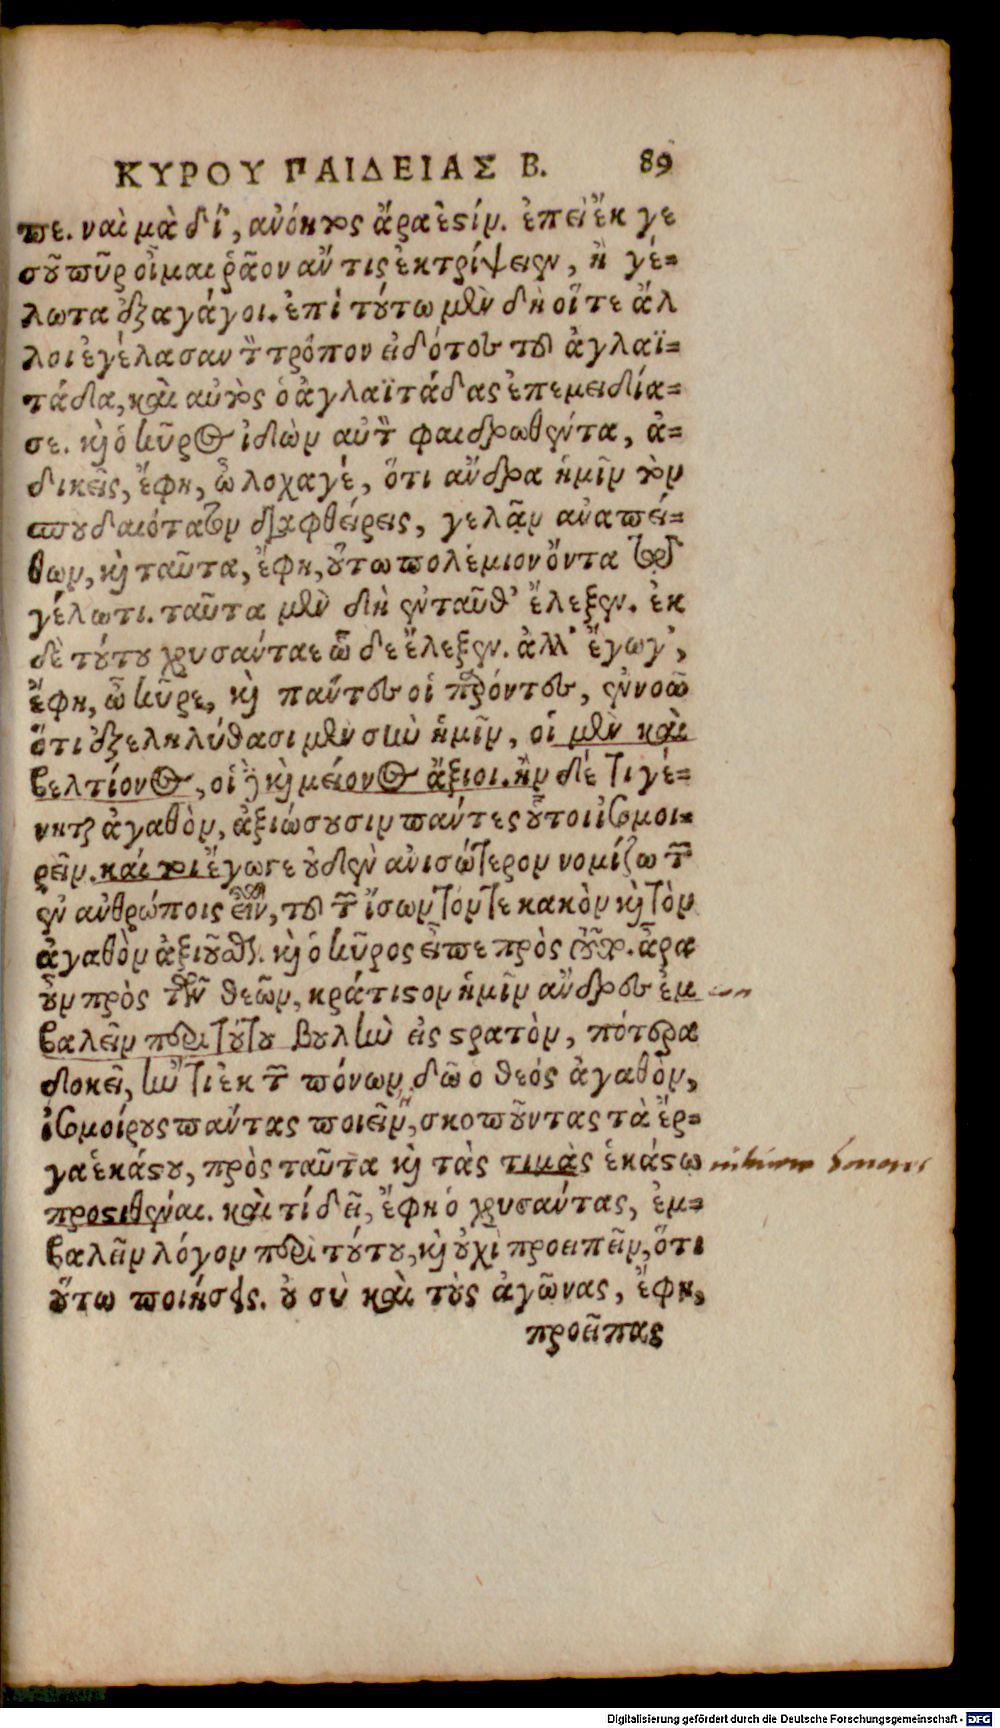 ΚΥΡΟΥ ΠΑΙΔΕΙΑΣ Β. 89
πε. ναὶ μὰ δί', ἀνόητος ἄρα ἐστίν. ἐπεὶ ἔκ γε
σοῦ πῦρ οἶμαι ῥᾷον ἄν τις ἐκτρίψειεν, ἢ γέ-
λωτα ἐξαγάγοι. ἐπὶ τούτω μὲν δὴ οἵ τε ἄλ
λοι ἐγέλασαν τὸν τρόπον εἰδότες τοῦ ἀγλαϊ-
τάδα, καὶ αὐτὸς ὁ ἀγλαϊτάδας ἐπεμειδία-
σε. καὶ ὁ κῦρος ἰδὼν αὐτὸν φαιδρωθέντα, ἀ-
δικεῖς, ἔφη, ὦ λοχαγέ, ὅτι ἄνδρα ἡμῖν τὸν
σπουδαιότατον διαφθείρεις, γελᾶν ἀναπεί-
θων, καὶ ταῦτα, ἔφη, οὕτω πολέμιον ὄντα τῷ
γέλωτι. ταῦτα μὲν δὴ ἐνταῦθ' ἔλεξεν. ἐκ
δὲ τούτου χρυσάντας ὧδε ἔλεξεν. ἀλλ' ἔγωγ',
ἔφη, ὦ κῦρε, καὶ πάντες οἱ παρόντες, ἐννοῶ
ὅτι ἐξεληλύθασι μὲν σὺν ἡμῖν, οἱ μὲν καὶ
βελτίονος, οἱ δὲ καὶ μείονος ἄξιοι. ἢν δέ τι γέ-
νηται ἀγαθὸν, ἀξιώσουσιν πάντες οὗτοι ἰσομοι-
ρεῖν. καί τοι ἔγωγε οὐδὲν ἀνισώτερον νομίζω τῶν
ἐν ἀνθρώποις εἶναι, τοῦ τῶν ἴσων τόν τε κακὸν καὶ τὸν
ἀγαθὸν ἀξιοῦσθαι. καὶ ὁ κῦρος εἶπε πρὸς τοῦτο. ἆρα
οὖν πρὸς τῶν θεῶν, κράτιστον ἡμῖν ἄνδρες ἐμ
βαλεῖν περὶ τούτου βουλὴν εἰς στρατὸν, πότερα
δοκεῖ, ἤν τι ἐκ τῶν πόνων δῶ ὁ θεός ἀγαθὸν,
ἰσομοίρους πάντας ποιεῖν, ἢ σκοποῦντας τὰ ἔρ-
γα ἑκάστου, πρὸς ταῦτα καὶ τὰς τιμὰς ἑκάστω
προστιθέναι. καὶ τί δεῖ, ἔφη ὁ χρυσάντας, ἐμ-
βαλεῖν λόγον περὶ τούτου, καὶ οὐχὶ προειπεῖν, ὅτι
οὕτω ποιήσεις. οὐ σὺ καὶ τοὺς ἀγῶνας, ἔφη,
προεῖπας
Digitalisierung gefördert durch die Deutsche Forschungsgemeinschaft - DFG